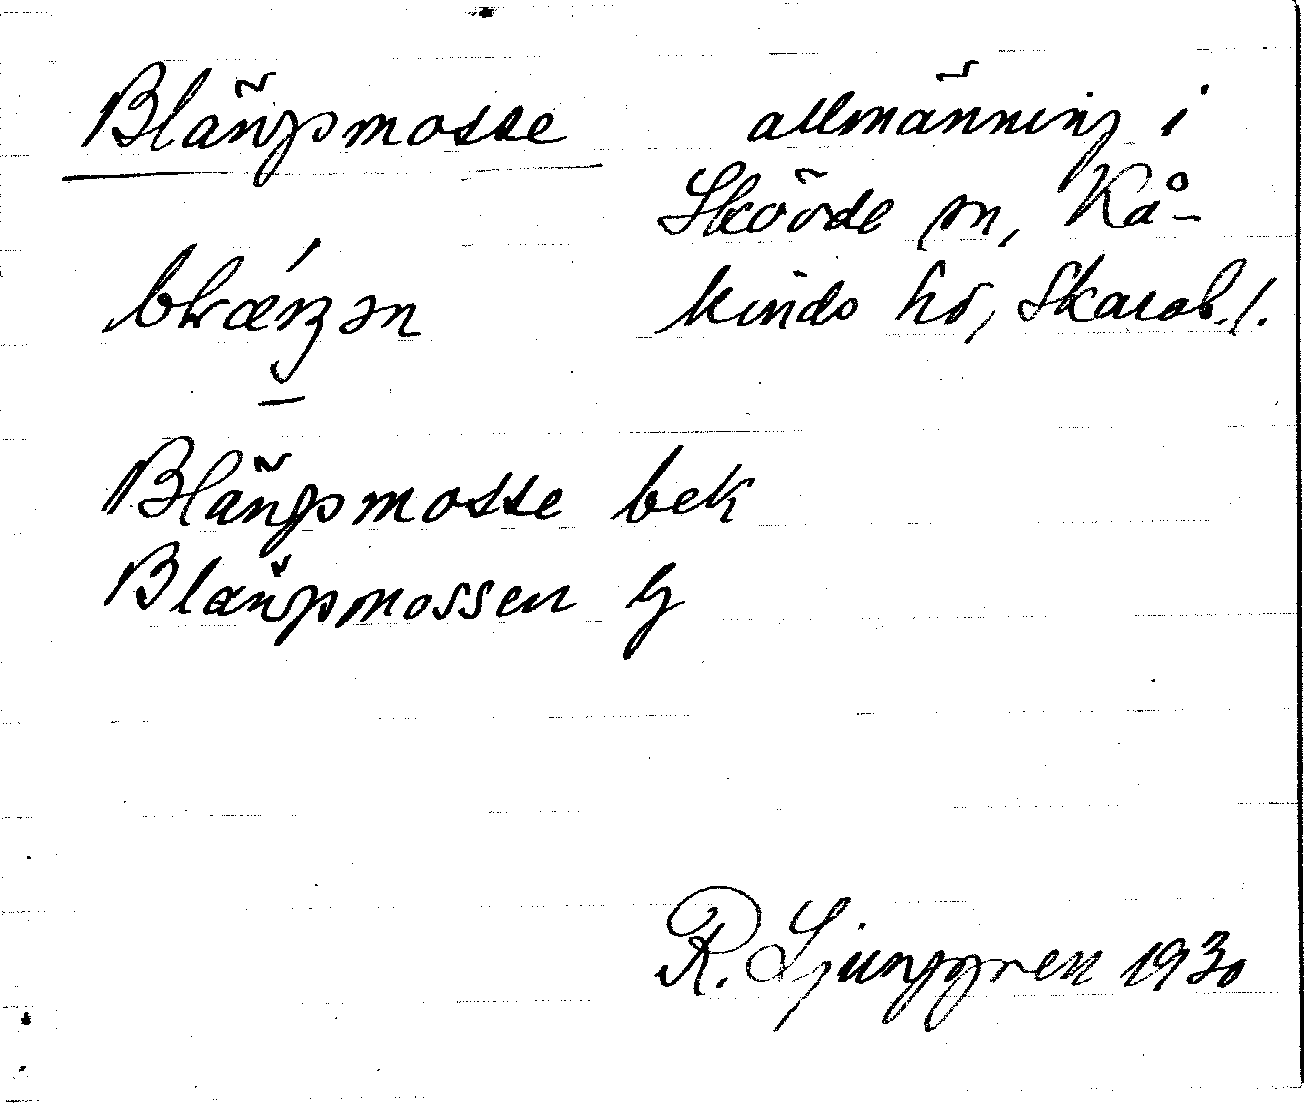 Blängsmosse allmänning i
Skövde sn, Kå-
kinds hd, Skarab. l.
Blängsmosse bek
Blängsmossen G
R. Ljunggren 1930